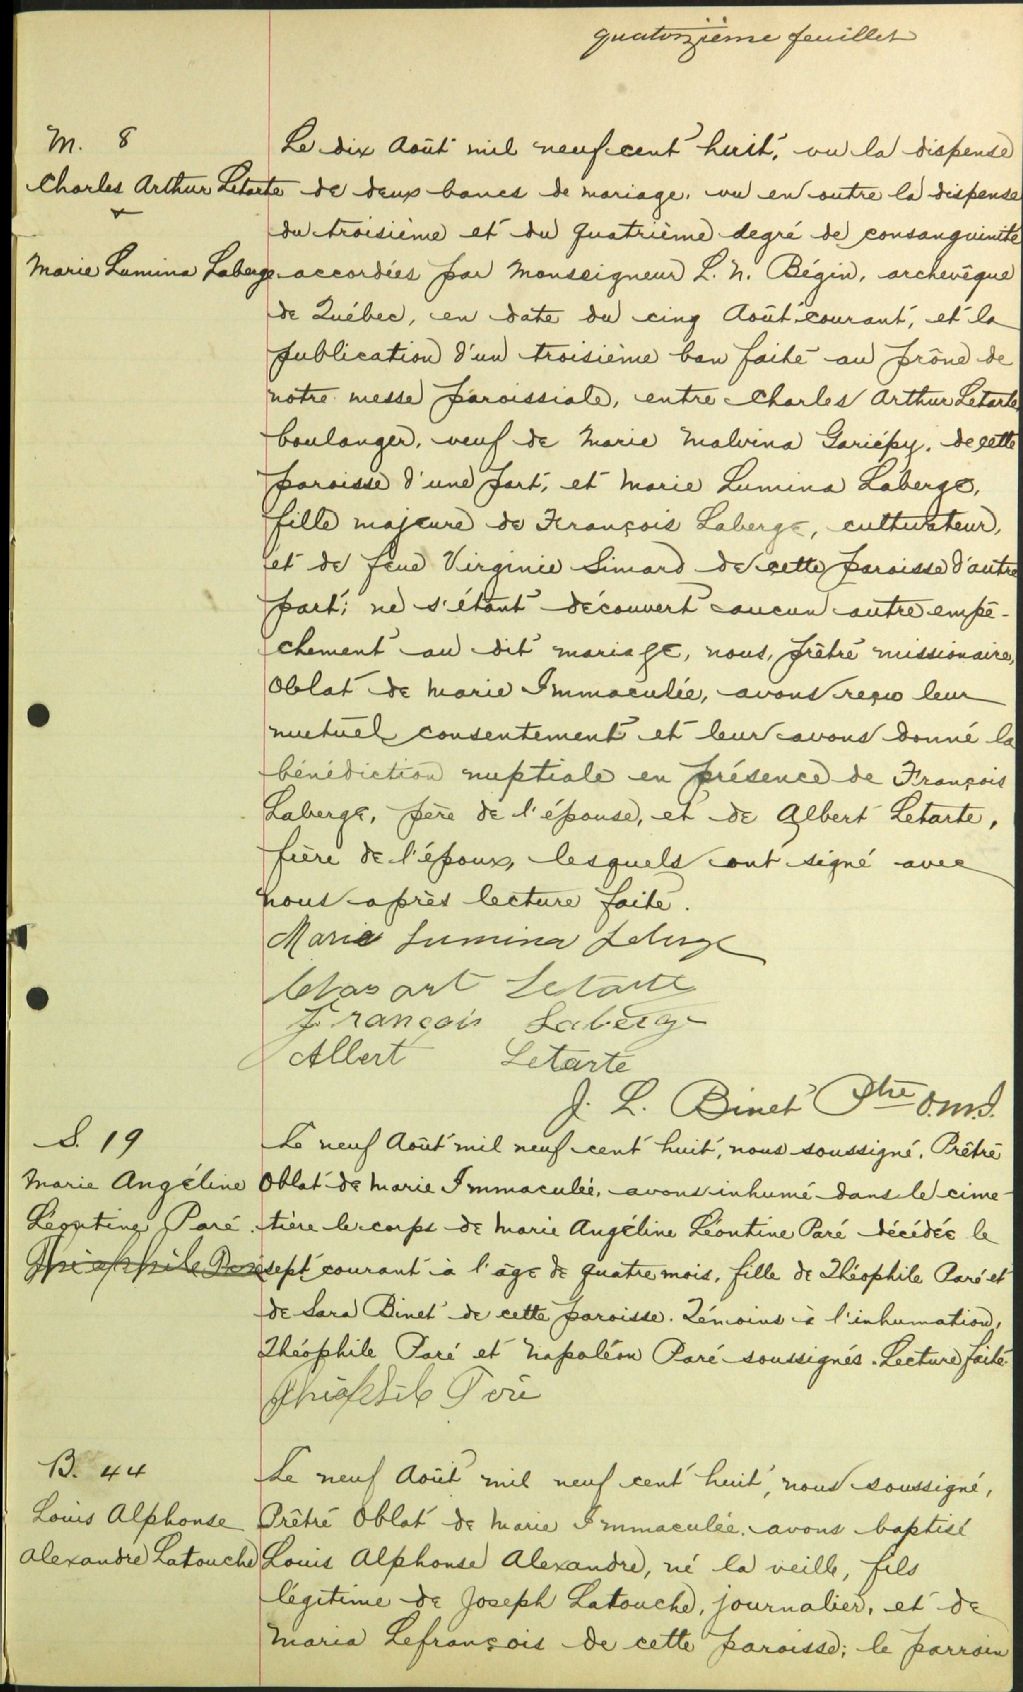 quatorzième feuillet
M. 8
Charles Arthur Letarte
&
Marie Lumina Laberge
Le dix Août mil neuf cent huit, vu la dispense
de deux bancs de mariage, vu en outre la dispense
du troisième et du quatrième degré de consanguinité
accordées par Monseigneur L. N. Bégin, archevêque
de Québec, en date du cinq Août courant, et la
publication d'un troisième ban faite au prône de
notre messe paroissiale, entre Charles Arthur Letarte,
boulanger, veuf de Marie Malvina Gariépy, de cette
paroisse d'une part, et Marie Lumina Laberge,
fille majeure de François Laberge, cultivateur,
et de feue Virginie Simard de cette paroisse d'autre
part; ne s'étant découvert aucun autre empê-
chement au dit mariage, nous, prêtre missionaire,
Oblat de Marie Immaculée, avons reçu leur
mutuel consentement et leur avons donné la
bénédiction nuptiale en présence de François
Laberge, père de l'épouse, et de Albert Letarte,
frère de l'époux, lesquels ont signé avec
nous après lecture faite.
Marie Lumina Laberge
Chas art Letarte
François Laberge
Albert Letarte
J. L. Binet Ptre O.M.I.
S. 19
Marie Angéline
Léontine Paré
Théophile Paré
Le neuf Août mil neuf cent huit, nous soussigné, Prêtre
Oblat de Marie Immaculée, avons inhumé dans le cime-
tière le corps de Marie Angéline Léontine Paré décédée le
sept courant à l'âge de quatre mois, fille de Théophile Paré et
de Sara Binet de cette paroisse. Témoins à l'inhumation,
Théophile Paré et Napoléon Paré soussignés. Lecture faite.
Théophile Paré
B. 44
Louis Alphonse
Alexandre Latouche
Le neuf Août mil neuf cent huit, nous soussigné,
Prêtre Oblat de Marie Immaculée, avons baptisé
Louis Alphonse Alexandre, né la veille, fils
légitime de Joseph Latouche, journalier, et de
Maria Lefrançois de cette paroisse; le parrain